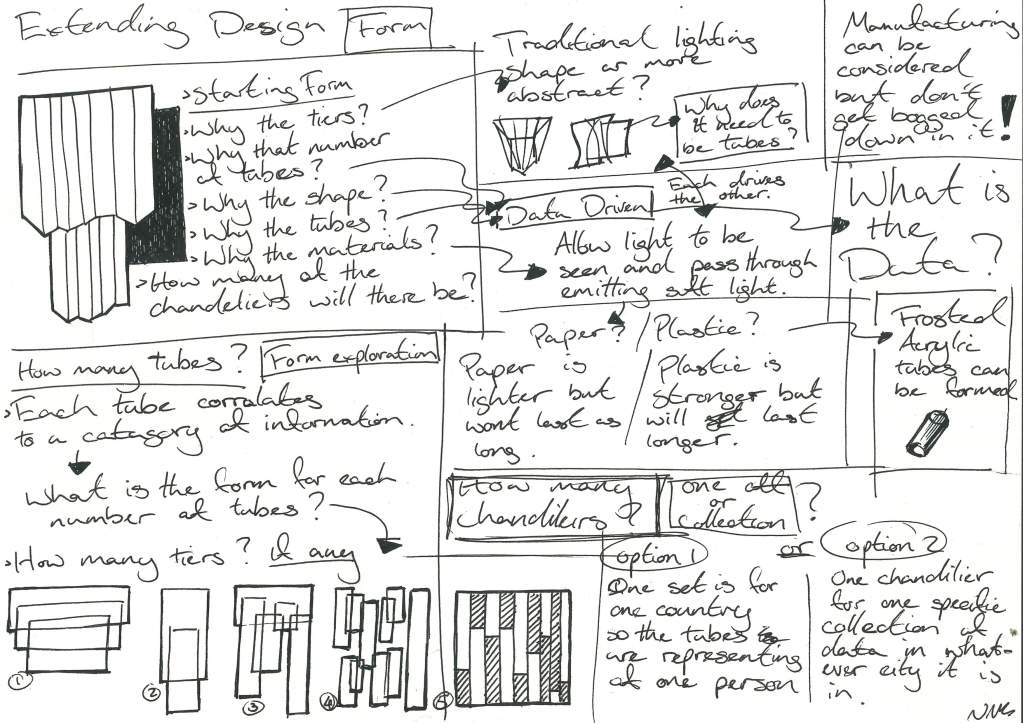 Extending Design Form
>Starting Form
>Why the tiers?
>Why that number
of tubes?
>Why the shape?
>Why the tubes?
>Why the materials?
>How many of the
chandeliers will there be?
Traditional lighting
shape or more
abstract?
Why does
it need to
be tubes?
Manufacturing
can be
considered
but don't
get bogged
down in it!
Each drives
the other.
Data Driven
Allow light to be
seen and pass through
emitting soft light.
What is
the
Data?
Paper? / Plastic?
Paper is
lighter but
wont last as
long.
Plastic is
stronger but
will last
longer.
Frosted
Acrylic
tubes can
be formed
How many tubes? Form exploration
>Each tube corralates
to a catagory of information.
What is the form for each
number of tubes?
>How many tiers? if any
1
2
3
4
5
How many
chandiliers?
one off
or
collection?
option 1
One set is for
one country
so the tubes
are representing
of one person
or
option 2
One chandilier
for one specific
collection of
data in what-
ever city it is
in.